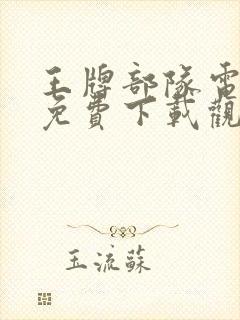 王牌部隊電
免費下載觀
玉流蘇